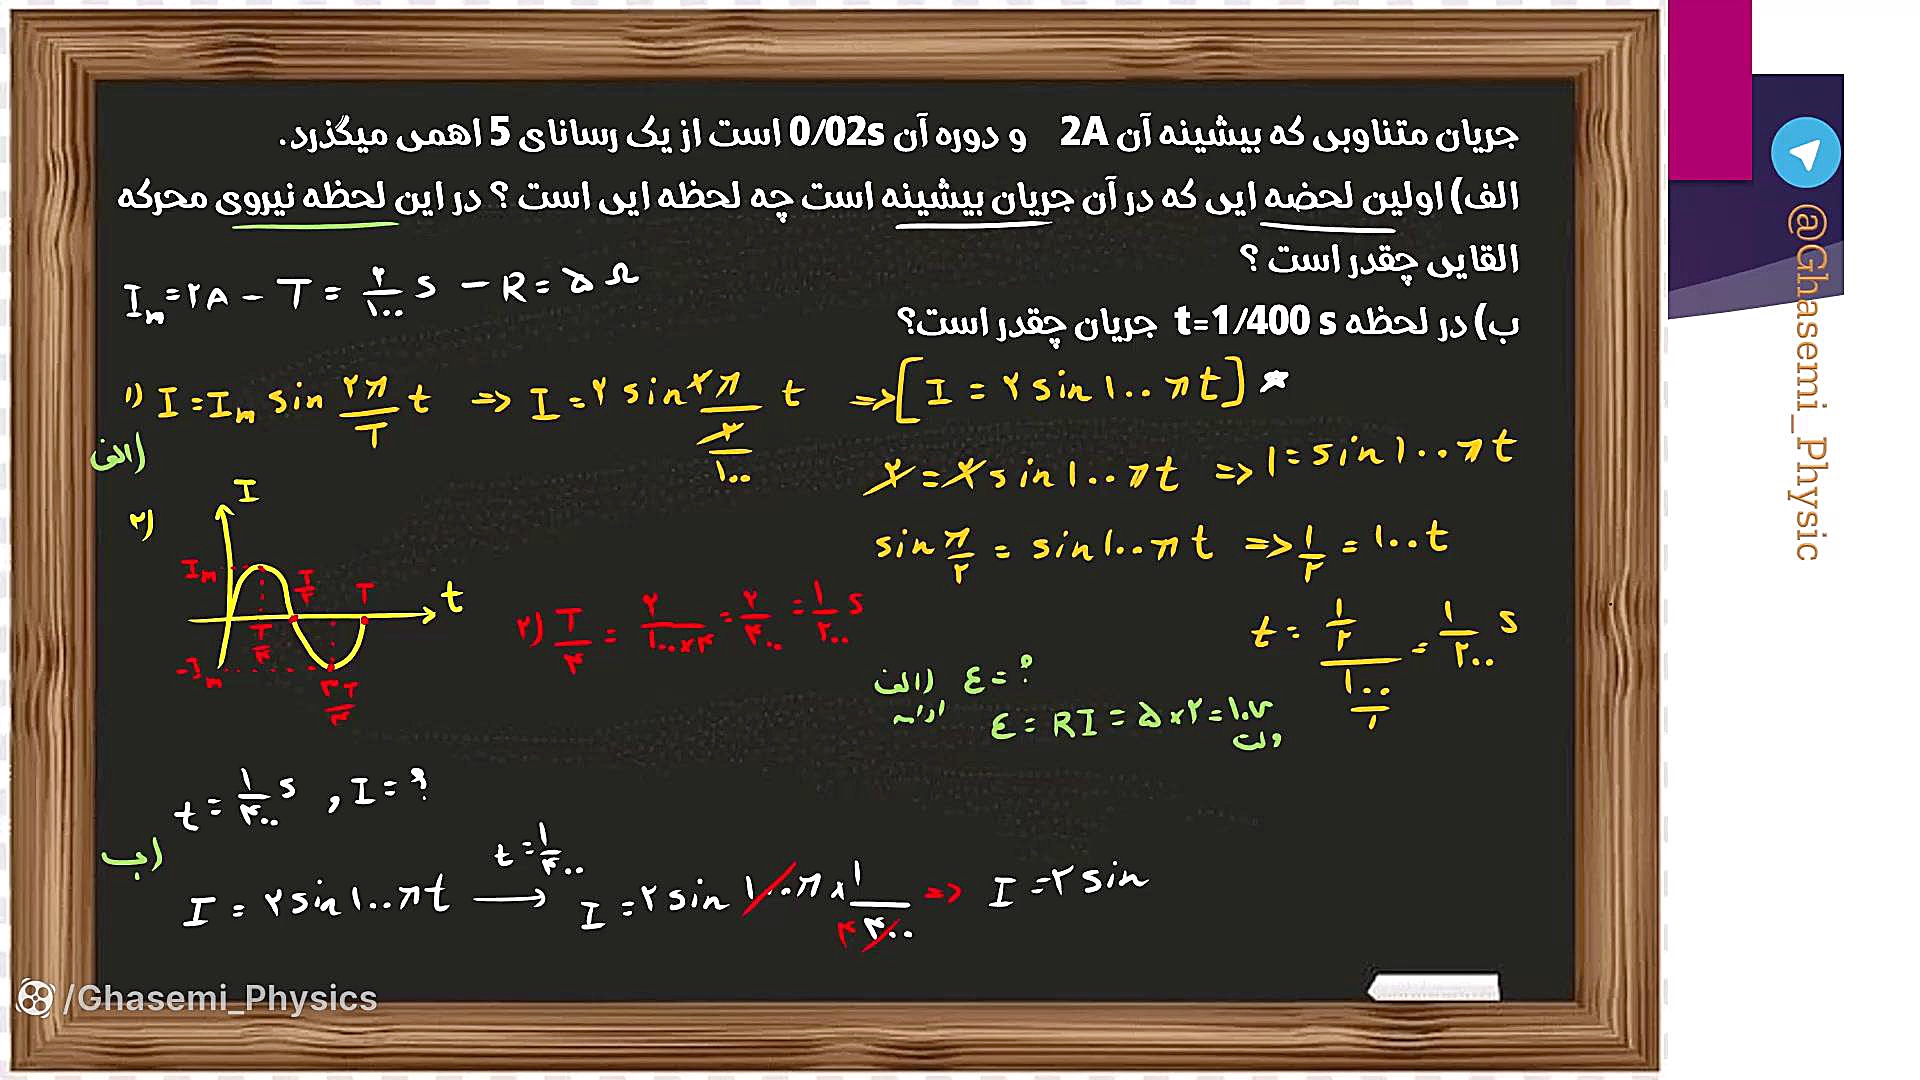 جریان متناوبی که بیشینه آن 2A و دوره آن 0/02s است از یک رسانای 5 اهمی میگذرد.
الف) اولین لحضه ایی که در آن جریان بیشینه است چه لحظه ایی است ؟ در این لحظه نیروی محرکه
القایی چقدر است ؟
ب) در لحظه t=1/400 s جریان چقدر است؟
Iₘ = ۲A - T = ۲/۱۰۰ s - R = ۵ Ω
۱) I = Iₘ sin ۲π/T t => I = ۲ sin ۲π/(۲/۱۰۰) t => [I = ۲ sin ۱۰۰πt] *
الف)
۲ = ۲ sin ۱۰۰πt => ۱ = sin ۱۰۰πt
sin π/۲ = sin ۱۰۰πt => ۱/۲ = ۱۰۰t
t = (۱/۲)/(۱۰۰/۱) = ۱/۲۰۰ s
۲)
I
Iₘ
T/۲
T
t
T/۴
-Iₘ
۳T/۴
۲) T/۴ = ۲/۱۰۰×۴ = ۲/۴۰۰ = ۱/۲۰۰ s
الف) ε = ؟
ادامه
ε = RI = ۵×۲ = ۱۰ v
ولت
t = ۱/۴۰۰ s , I = ؟
ب)
I = ۲ sin ۱۰۰πt → t = ۱/۴۰۰ I = ۲ sin ۱۰۰π × ۱/۴۰۰ ۴ => I = ۲ sin
@Ghasemi_Physic
/Ghasemi_Physics